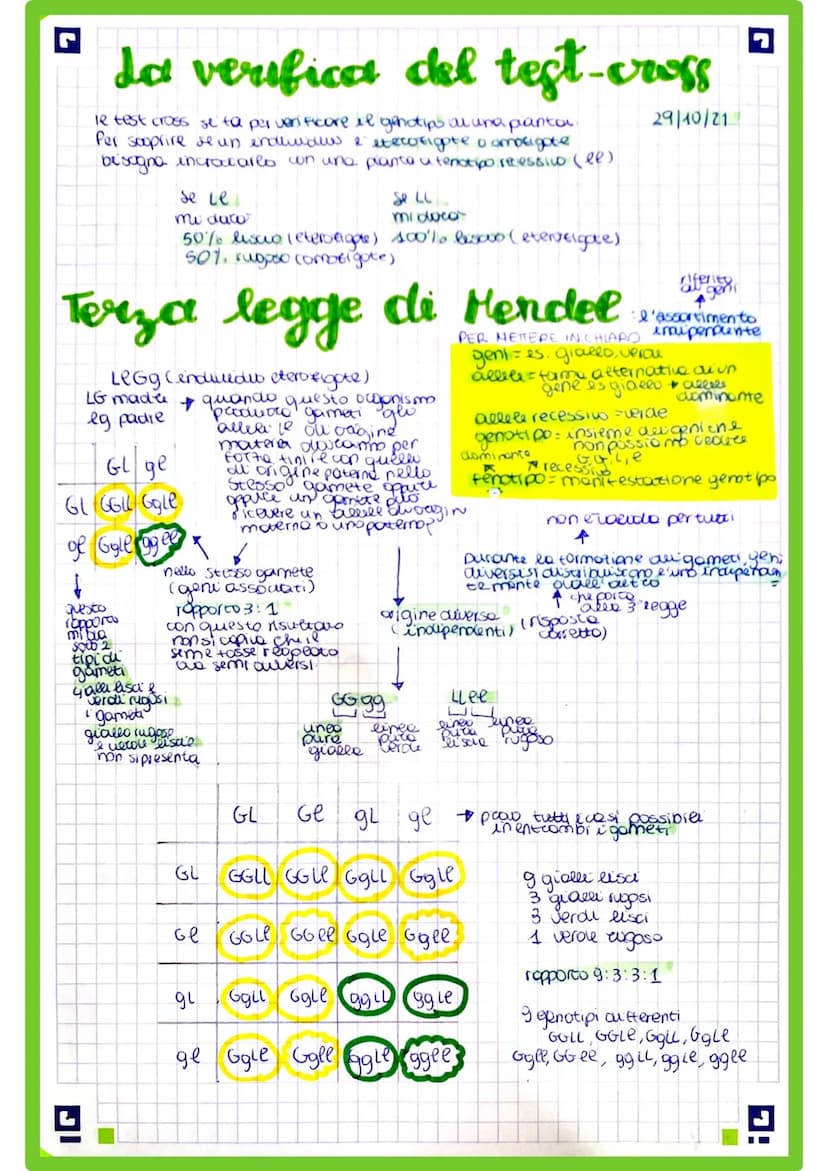 La verifica del test-cross
29/10/21
le test cross si fa per verificare il genotipo di una pianta.
Per scoprire se un individuo è eterozigote o omozigote
bisogna incrociarlo con una pianta a fenotipo recessivo (ll)
se Ll
mi darà
50% liscio (eterozigote)
50% rugoso (omozigote)
se LL
mi darà
100% liscio (eterozigote)
Terza legge di Mendel
: l'assortimento
indipendente
riferito
ai geni
PER METTERE IN CHIARO
geni = es. giallo, verde
allele = forma alternativa di un
gene es giallo → allele
dominante
allele recessivo = verde
genotipo = insieme dei geni che
non possiamo vedere
G, g, L, l
dominante
recessivo
fenotipo = manifestazione genotipo
LlGg (individuo eterozigote)
LG madre
lg padre
→ quando questo organismo
produce gameti gli
alleli di origine
materna dovranno per
forza finire con quello
di origine paterna nello
stesso gamete oppure
oppure un gamete può
ricevere un allele di origin
materna o uno paterno?
GL gl
GL GGLL GgLl
gl GgLl ggll
questo
rapporto
mi dà
solo 2
tipi di
gameti
gialli lisci e
verdi rugosi
i gameti
giallo rugoso
e verde liscio
non si presenta
nello stesso gamete
(geni associati)
rapporto 3:1
con questo risultato
non si capiva che il
seme fosse
da semi diversi
origine diversa
(indipendenti)
(risposta
corretta)
non è valida per tutti
Durante la formazione dei gameti, geni
diversi si distribuiscono l'uno indipenden
temente dall'altro
che porta
alla 3° legge
GGgg
linea
pura
gialla
linea
pura
verde
LLll
linea
pura
liscia
linea
pura
rugoso
GL Gl gL gl → provo tutti i casi possibili
in entrambi i gameti
GL GGLL GGLl GgLL GgLl
Gl GGLl GGll GgLl Ggll
gL GgLL GgLl ggLL ggLl
gl GgLl Ggll ggLl ggll
9 gialli lisci
3 gialli rugosi
3 verdi lisci
1 verde rugoso
rapporto 9:3:3:1
9 genotipi differenti
GGLL, GGLl, GgLL, GgLl
Ggll, GGll, ggLL, ggLl, ggll